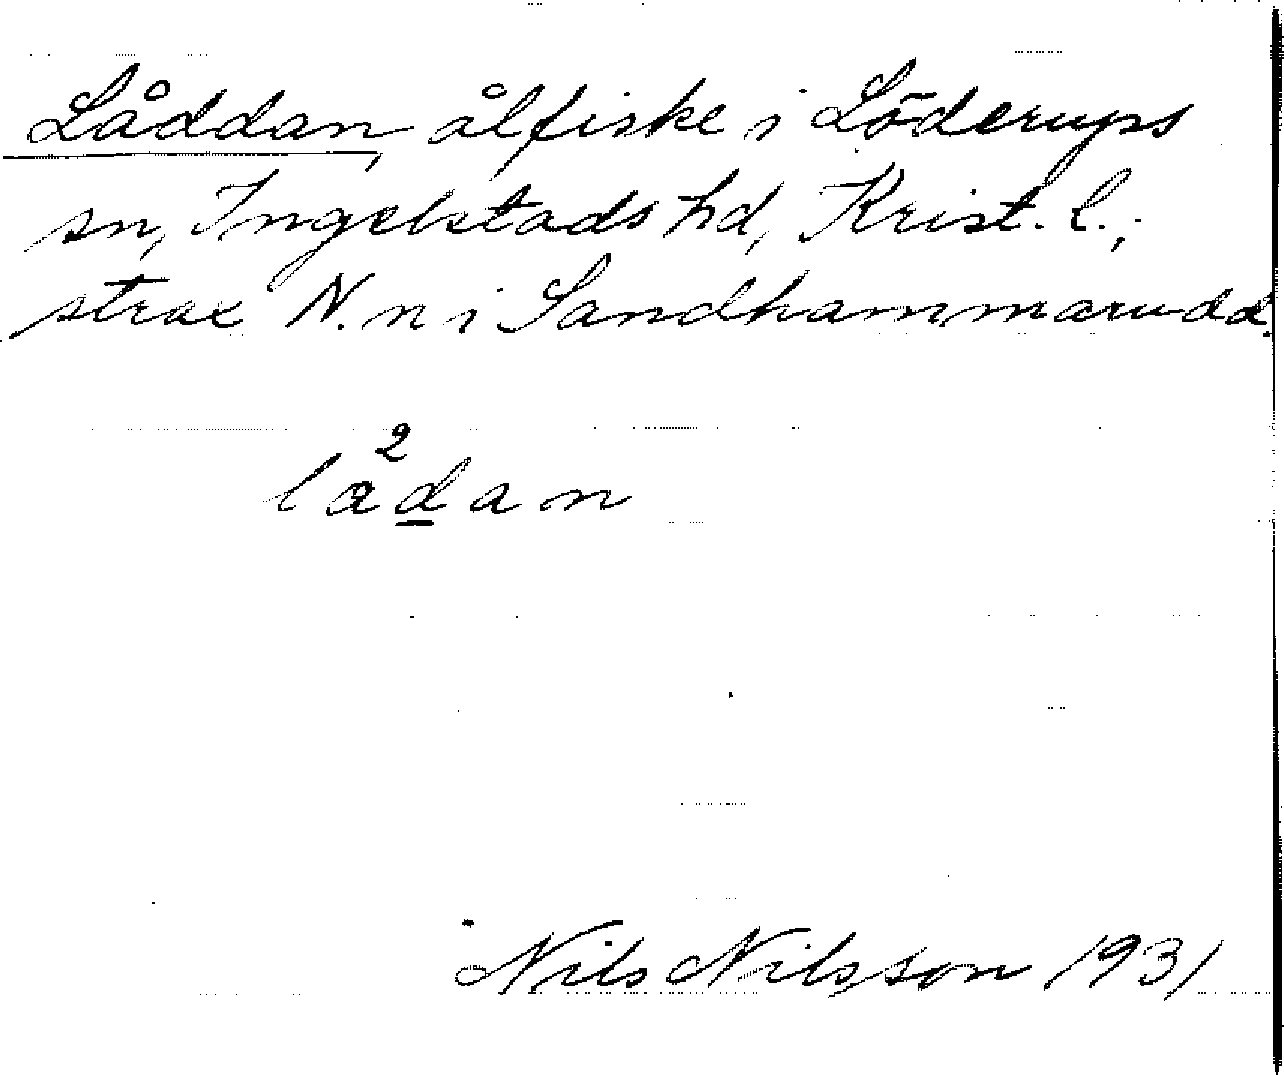 Låddan, ålfiske i Löderups
sn, Ingelstads hd, Krist. l.;
strax N. n i Sandhammarudd.
lad²an
Nils Nilsson 1931